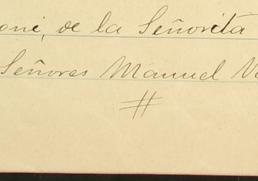 de la Señorita
Señores Manuel